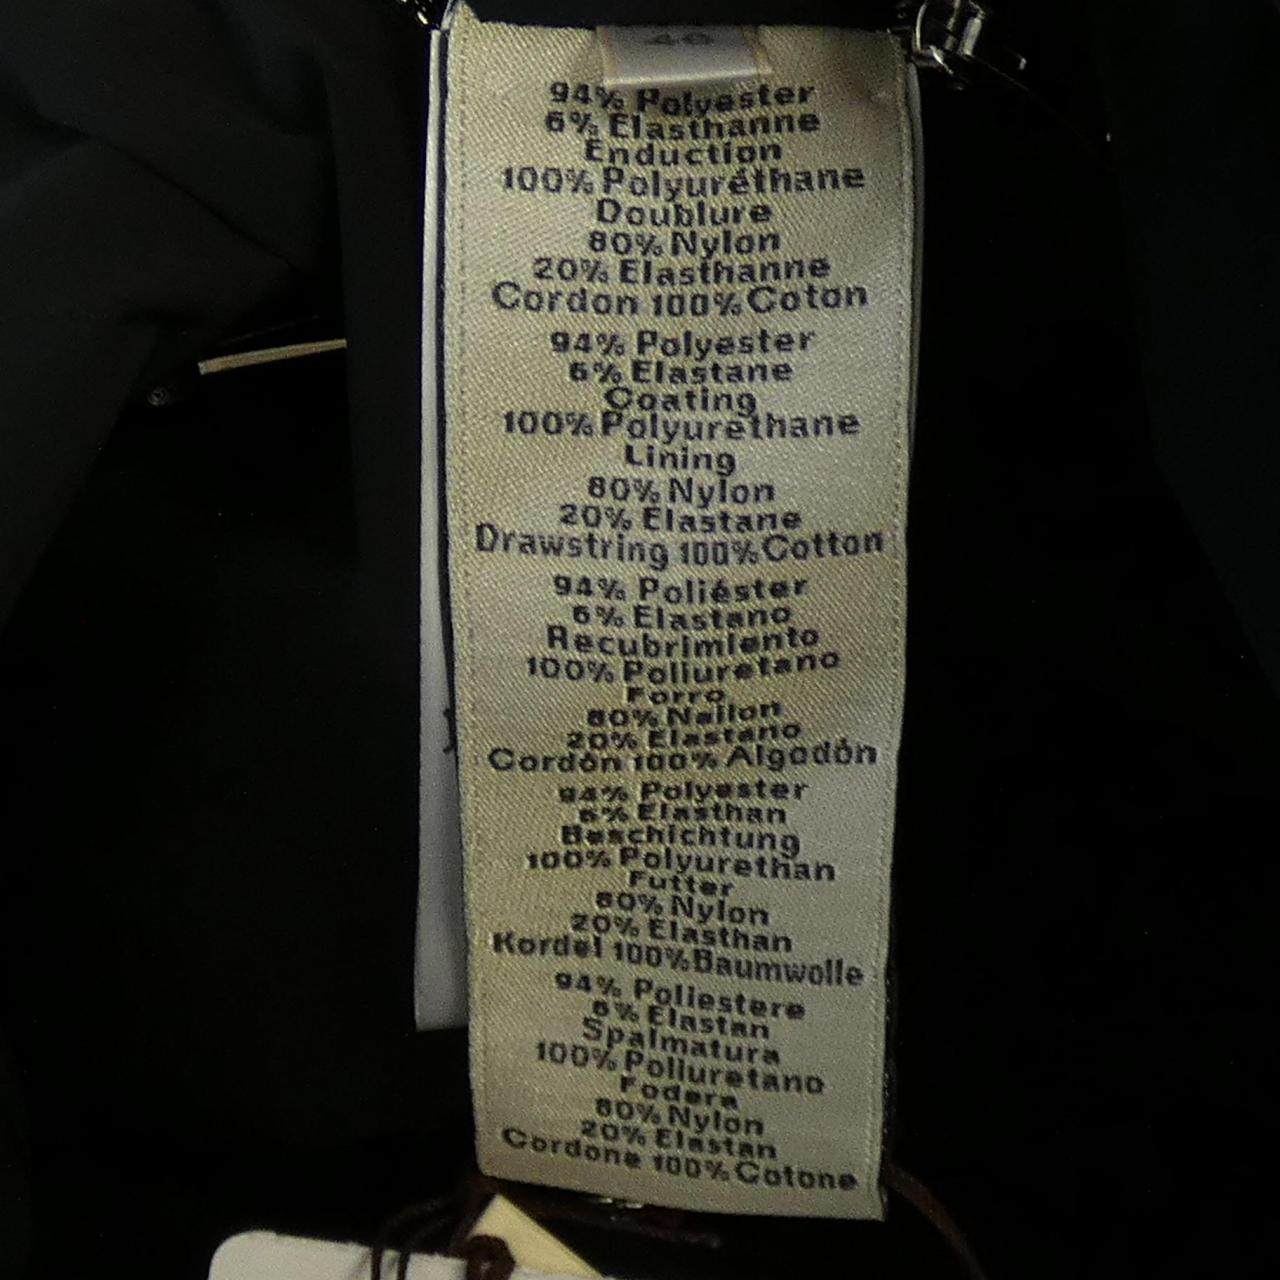 46
94% Polyester
6% Elasthanne
Enduction
100% Polyuréthane
Doublure
80% Nylon
20% Elasthanne
Cordon 100% Coton
94% Polyester
6% Elastane
Coating
100% Polyurethane
Lining
80% Nylon
20% Elastane
Drawstring 100% Cotton
94% Poliéster
6% Elastano
Recubrimiento
100% Poliuretano
Forro
80% Nailon
20% Elastano
Cordón 100% Algodón
94% Polyester
6% Elasthan
Beschichtung
100% Polyurethan
Futter
80% Nylon
20% Elasthan
Kordel 100% Baumwolle
94% Poliestere
6% Elastan
Spalmatura
100% Poliuretano
Fodera
80% Nylon
20% Elastan
Cordone 100% Cotone